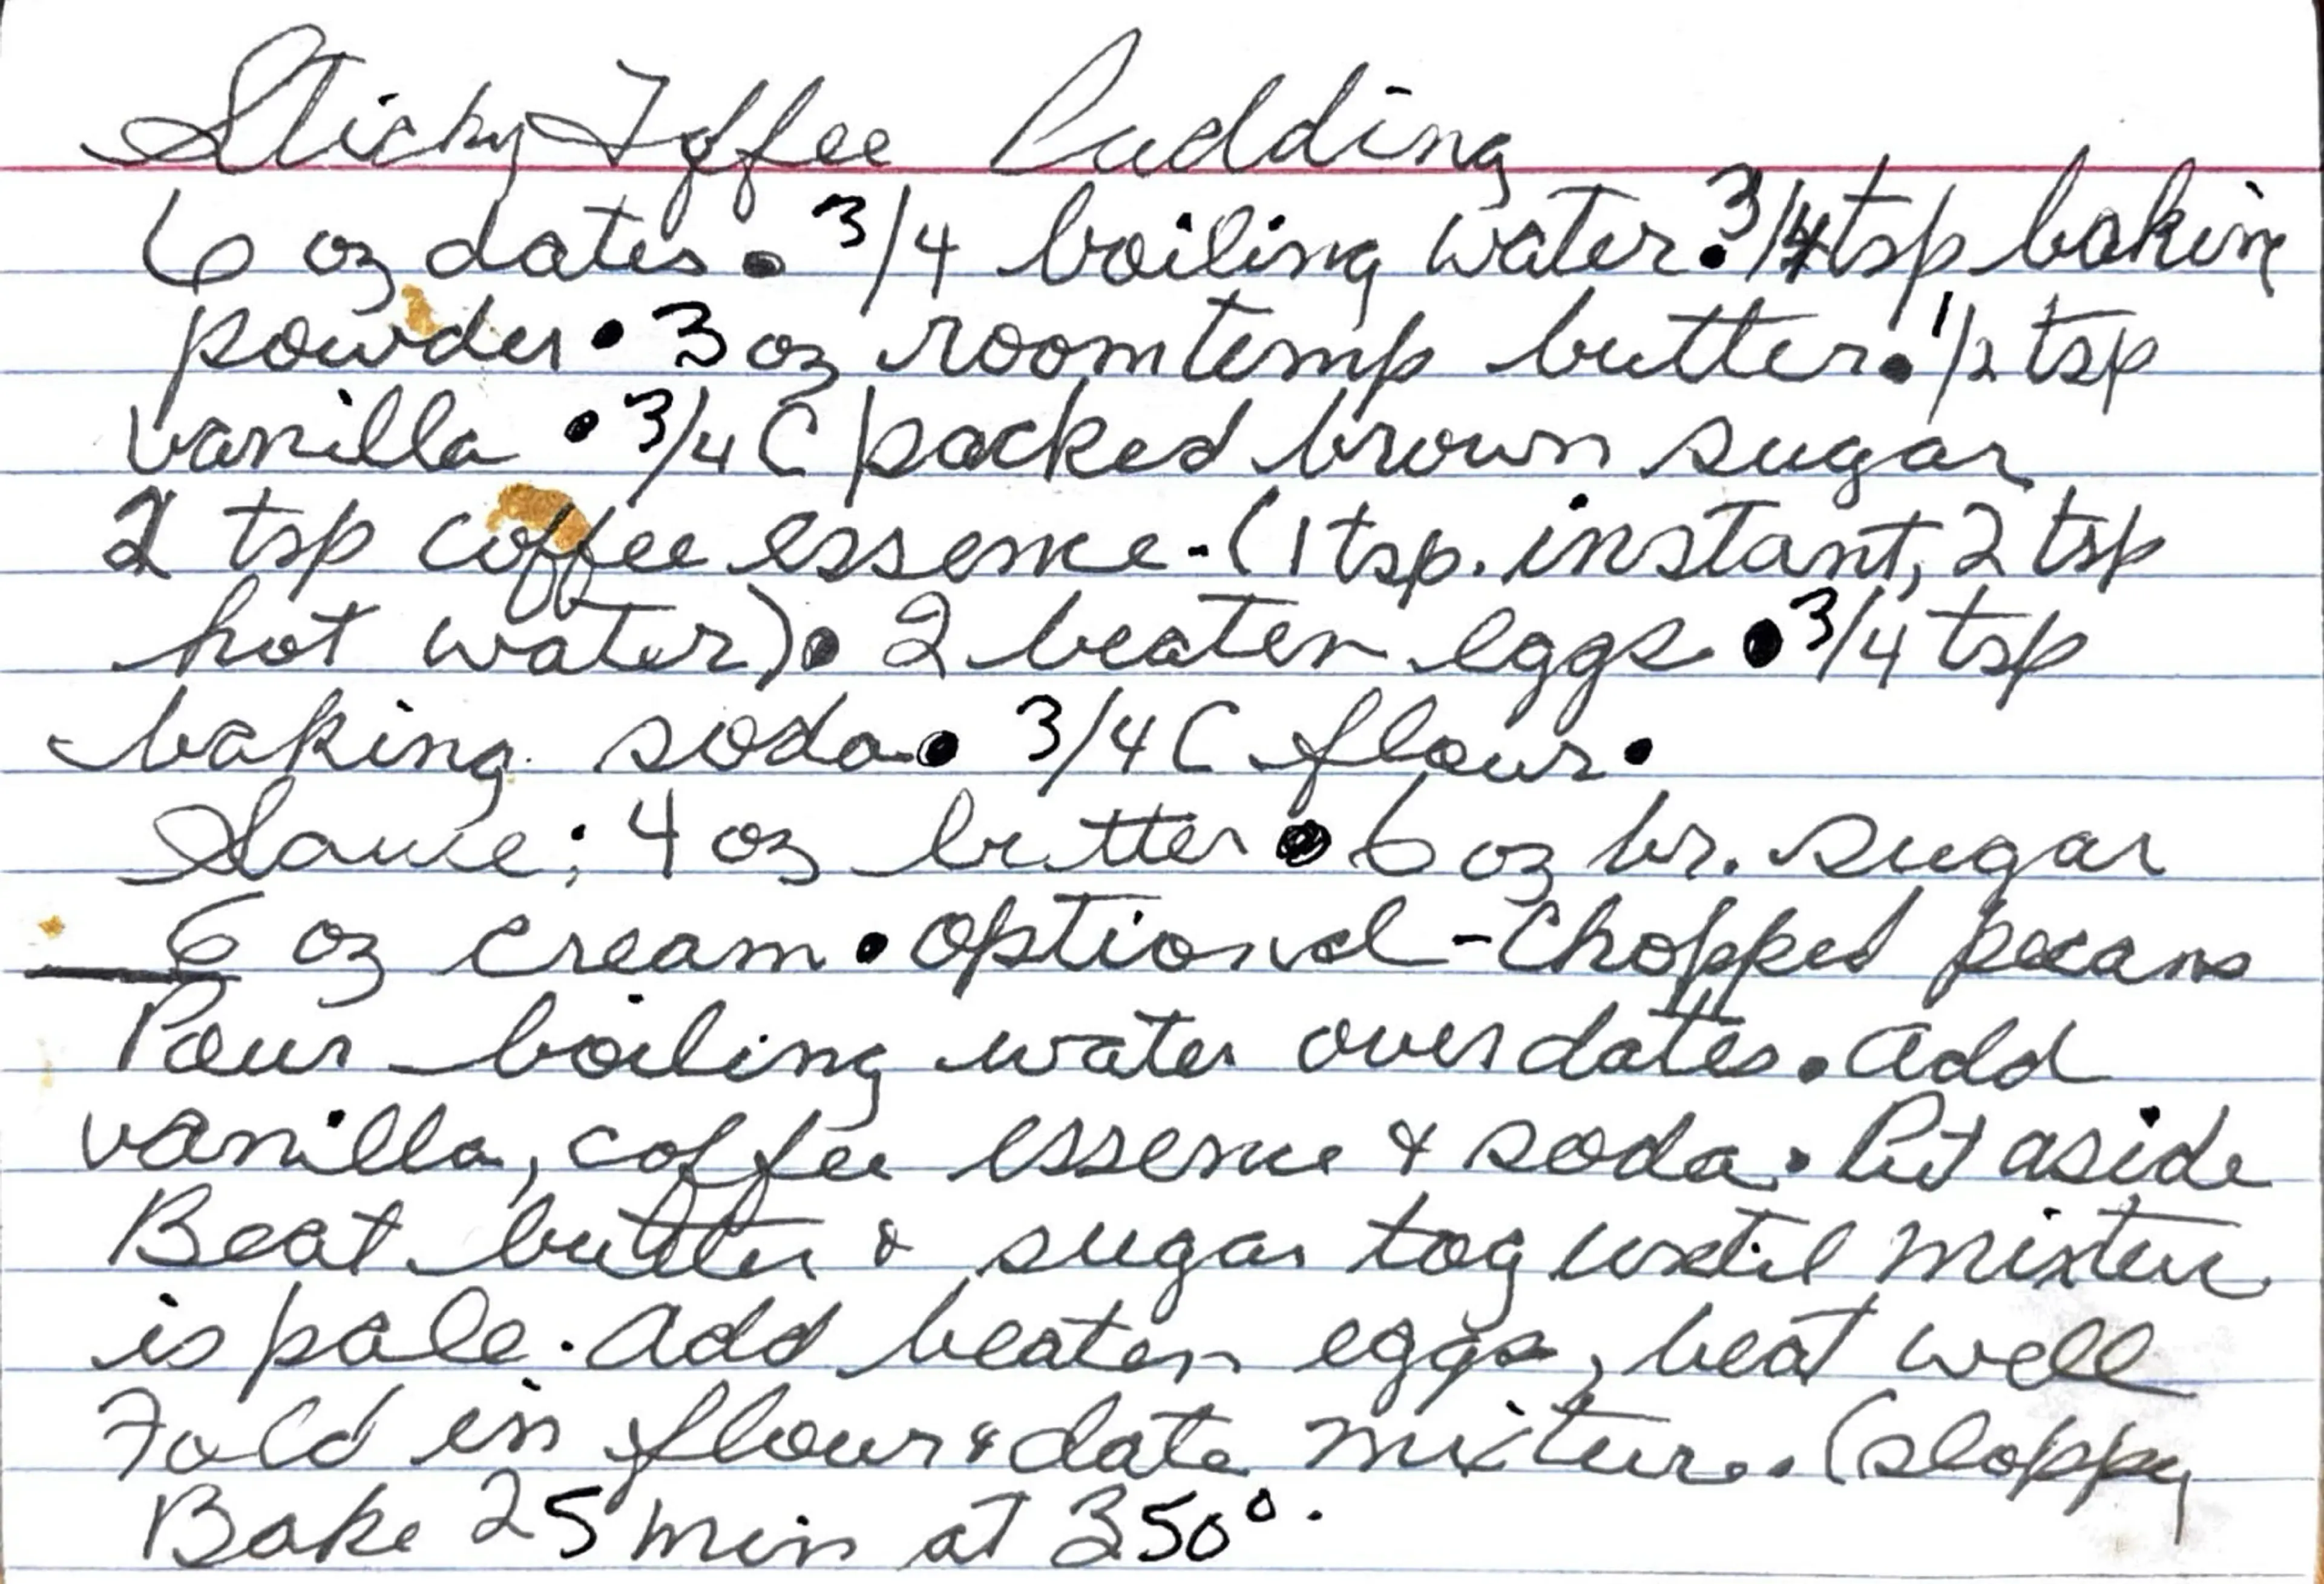 Sticky Toffee Pudding
6 oz dates • 3/4 boiling water • 3/4 tsp baking
powder • 3 oz room temp butter • 1/2 tsp
vanilla • 3/4 C packed brown sugar
2 tsp coffee essence - (1 tsp. instant, 2 tsp
hot water) • 2 beaten eggs • 3/4 tsp
baking soda • 3/4 C flour •
Sauce; 4 oz butter • 6 oz br. sugar
6 oz cream • optional - Chopped pecans
Pour boiling water over dates. Add
vanilla, coffee essence & soda. Put aside
Beat butter & sugar tog until mixture
is pale. Add beaten eggs, beat well
Fold in flour & date mixture. (sloppy
Bake 25 min at 350°.